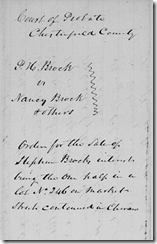 Court of Probate
Chesterfield County
P. H. Brock
vs
Nancy Brock
& others
Order for the Sale of
Stephen Brocks interest
being the one half in a
Lot No 246 on Market
Street contained in Cheraw